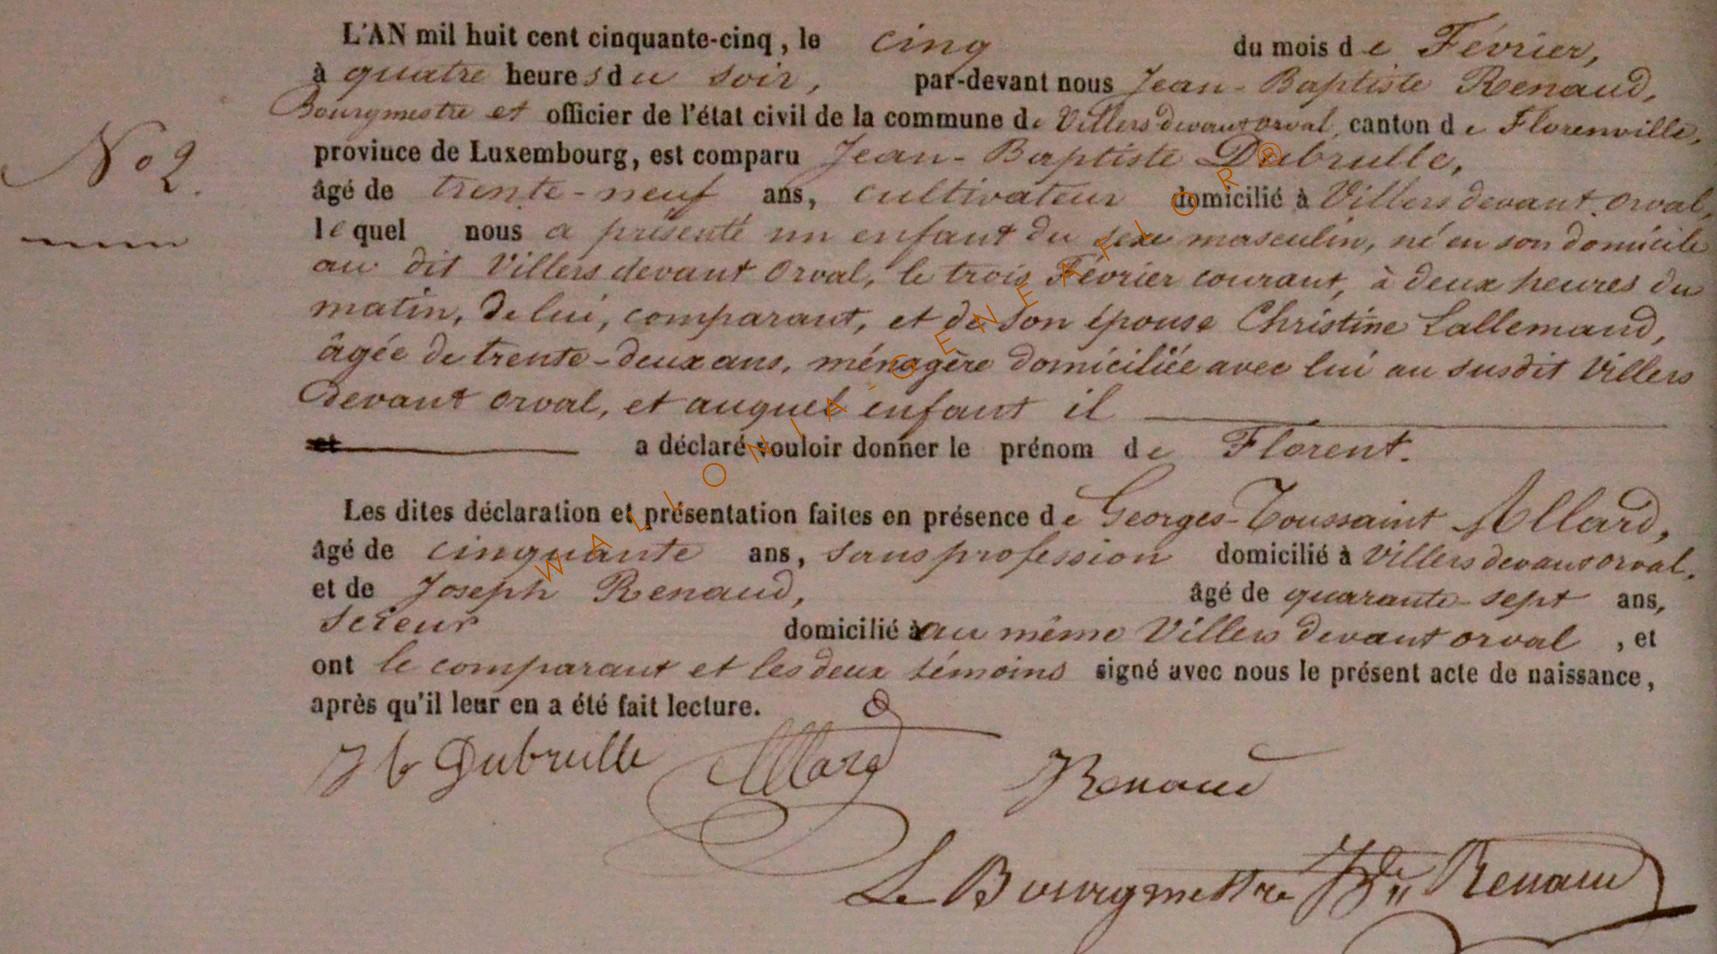 L'AN mil huit cent cinquante-cinq, le cinq du mois de Février,
à quatre heures du soir, par-devant nous Jean-Baptiste Renaud,
Bourgmestre et officier de l'état civil de la commune de Villers devant orval, canton de Florenville,
province de Luxembourg, est comparu Jean-Baptiste Dubrulle,
âgé de trente-neuf ans, cultivateur domicilié à Villers devant orval,
lequel nous a présenté un enfant du sexe masculin, né en son domicile
au dit Villers devant Orval, le trois Février courant, à deux heures du
matin, de lui, comparant, et de son épouse Christine Lallemand,
âgée de trente-deux ans, ménagère domiciliée avec lui au susdit Villers
devant orval, et auquel enfant il
et a déclaré vouloir donner le prénom de Florent.
No 2.
Les dites déclaration et présentation faites en présence de Georges-Toussaint Allard,
âgé de cinquante ans, sans profession domicilié à Villers devant orval.
et de Joseph Renaud, âgé de quarante-sept ans,
Scieur domicilié à au même Villers devant orval, et
ont le comparant et les deux témoins signé avec nous le présent acte de naissance,
après qu'il leur en a été fait lecture.
Jb Dubrulle Allard Renaud
Le Bourgmestre JBte Renaud
WALLONIA-GENEAFLOR®